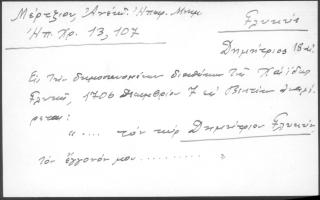 Μέρτζιου, Ἀνέκδ. Ἠπειρ. Μνημ.
Γλυκύς
Ἠπ. Χρ. 13, 107
Δημήτριος 18 αἰ.
Εἰς τὴν δημοσιευομένην διαθήκην τοῦ Χατζῆ
Γλυκῆ, 1706 Δεκεμβρίου 7 ἐν Βενετίᾳ ἀναφέ
ρεται:
"... τὸν κύρ Δημήτριον Γλυκύν
τὸν ἔγγονόν μου ..........."